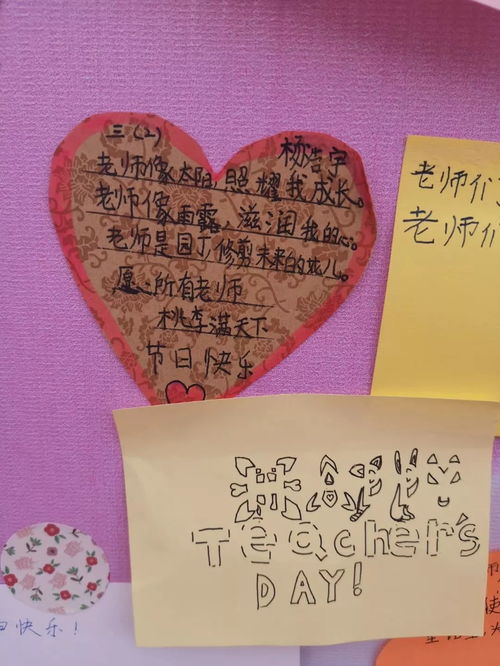 三(2)
杨浩宇
老师像太阳,照耀我成长。
老师像雨露,滋润我的心。
老师是园丁,修剪未来的花儿。
愿:所有老师
桃李满天下
节日快乐
老师们
老师们
HAPPY
Teacher's
DAY!
日快乐!
使